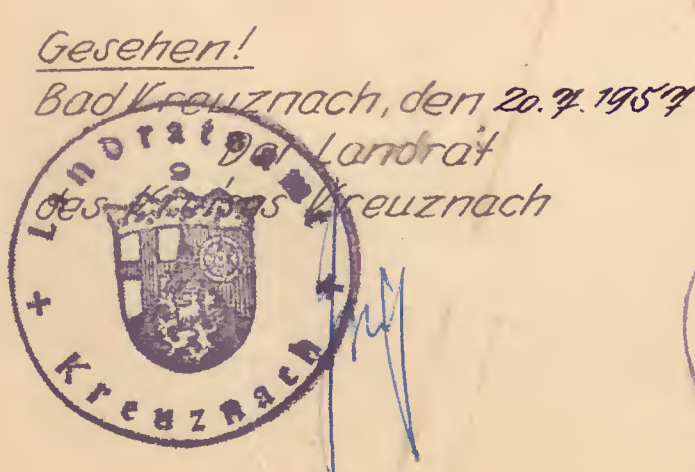 Gesehen!
Bad Kreuznach, den 20.7.1957
Der Landrat
des Kreises Kreuznach
Landratsamt
+ Kreuznach +